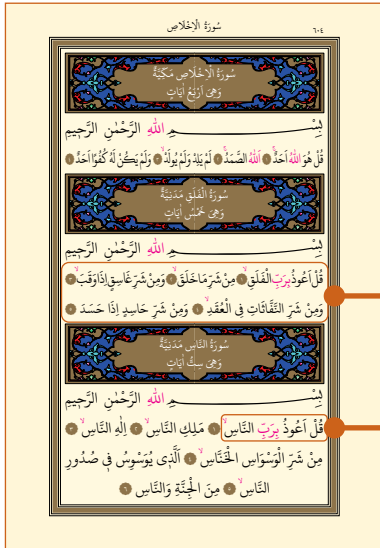 سُورَةُ الْاِخْلَاصِ
٦٠٤
سُورَةُ الْاِخْلَاصِ مَكِّيَّةٌ
وَهِىَ اَرْبَعُ اٰيَاتٍ
بِسْمِ اللهِ الرَّحْمٰنِ الرَّحِيمِ
قُلْ هُوَ اللهُ اَحَدٌۚ ﴿١﴾ اَللهُ الصَّمَدُۚ ﴿٢﴾ لَمْ يَلِدْ وَلَمْ يُولَدْۙ ﴿٣﴾ وَلَمْ يَكُنْ لَهُ كُفُوًا اَحَدٌ ﴿٤﴾
سُورَةُ الْفَلَقِ مَدَنِيَّةٌ
وَهِىَ خَمْسُ اٰيَاتٍ
بِسْمِ اللهِ الرَّحْمٰنِ الرَّحِيمِ
قُلْ اَعُوذُ بِرَبِّ الْفَلَقِۙ ﴿١﴾ مِنْ شَرِّ مَا خَلَقَۙ ﴿٢﴾ وَمِنْ شَرِّ غَاسِقٍ اِذَا وَقَبَۙ ﴿٣﴾
وَمِنْ شَرِّ النَّفَّاثَاتِ فِى الْعُقَدِۙ ﴿٤﴾ وَمِنْ شَرِّ حَاسِدٍ اِذَا حَسَدَ ﴿٥﴾
سُورَةُ النَّاسِ مَدَنِيَّةٌ
وَهِىَ سِتُّ اٰيَاتٍ
بِسْمِ اللهِ الرَّحْمٰنِ الرَّحِيمِ
قُلْ اَعُوذُ بِرَبِّ النَّاسِۙ ﴿١﴾ مَلِكِ النَّاسِۙ ﴿٢﴾ اِلٰهِ النَّاسِۙ ﴿٣﴾
مِنْ شَرِّ الْوَسْوَاسِ الْخَنَّاسِۙ ﴿٤﴾ اَلَّذِى يُوَسْوِسُ فِى صُدُورِ
النَّاسِۙ ﴿٥﴾ مِنَ الْجِنَّةِ وَالنَّاسِ ﴿٦﴾